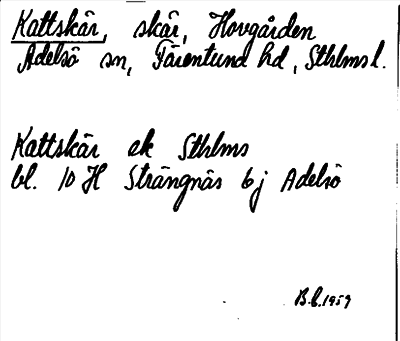 Kattskär, skär, Hovgården
Adelsö sn, Färentuna hd, Sthlms l.
Kattskär ek Sthlms
bl. 10 H Strängnäs 6 j Adelsö
B.L. 1959